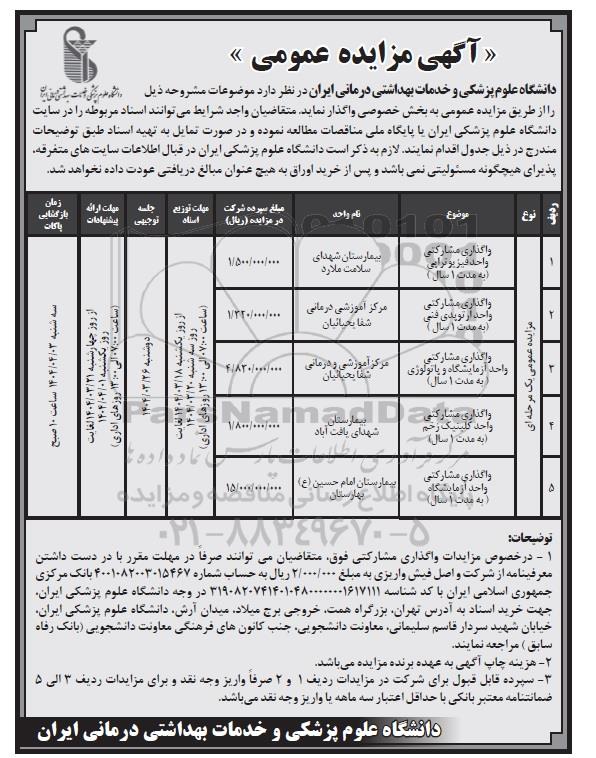 « آگهی مزایده عمومی »
دانشگاه علوم پزشکی و خدمات بهداشتی درمانی ایران
دانشگاه علوم پزشکی و خدمات بهداشتی درمانی ایران در نظر دارد موضوعات مشروحه ذیل
را از طریق مزایده عمومی به بخش خصوصی واگذار نماید. متقاضیان واجد شرایط می‌توانند اسناد مربوطه را در سایت
دانشگاه علوم پزشکی ایران یا پایگاه ملی مناقصات مطالعه نموده و در صورت تمایل به تهیه اسناد طبق توضیحات
مندرج در ذیل جدول اقدام نمایند. لازم به ذکر است دانشگاه علوم پزشکی ایران در قبال اطلاعات سایت های متفرقه،
پذیرای هیچگونه مسئولیتی نمی باشد و پس از خرید اوراق به هیچ عنوان مبالغ دریافتی عودت داده نخواهد شد.
ردیف | نوع | موضوع | نام واحد | مبلغ سپرده شرکت در مزایده (ریال) | مهلت توزیع اسناد | جلسه توجیهی | مهلت ارائه پیشنهادات | زمان بازگشایی پاکات
مزایده عمومی یک مرحله ای
۱ | واگذاری مشارکتی واحد فیزیوتراپی (به مدت ۱ سال) | بیمارستان شهدای سلامت ملارد | ۱/۵۰۰/۰۰۰/۰۰۰
۲ | واگذاری مشارکتی واحد ارتوپدی فنی (به مدت ۱ سال) | مرکز آموزشی درمانی شفا یحیائیان | ۱/۳۲۰/۰۰۰/۰۰۰
۳ | واگذاری مشارکتی واحد آزمایشگاه و پاتولوژی (به مدت ۱ سال) | مرکز آموزشی و درمانی شفا یحیائیان | ۴/۸۳۰/۰۰۰/۰۰۰
۴ | واگذاری مشارکتی واحد کلینیک زخم (به مدت ۱ سال) | بیمارستان شهدای یافت آباد | ۱/۸۰۰/۰۰۰/۰۰۰
۵ | واگذاری مشارکتی واحد آزمایشگاه (به مدت ۱ سال) | بیمارستان امام حسین (ع) بهارستان | ۱۵/۰۰۰/۰۰۰/۰۰۰
از روز یکشنبه ۱۴۰۴/۰۳/۱۸ لغایت
روز سه شنبه ۱۴۰۴/۰۳/۲۰
(ساعت ۰۷:۰۰ الی ۱۳:۰۰ روزهای اداری)
دوشنبه ۱۴۰۴/۰۳/۲۶
از روز چهارشنبه ۱۴۰۴/۰۳/۲۱ لغایت
روز یکشنبه ۱۴۰۴/۰۴/۰۱
(ساعت ۰۷:۰۰ الی ۱۳:۰۰ روزهای اداری)
سه شنبه ۱۴۰۴/۰۴/۰۳ ساعت ۱۰ صبح
ParsNamadData
مرکز فرآوری اطلاعات پارس نماد داده ها
پایگاه اطلاع رسانی مناقصه و مزایده
۰۲۱-۸۸۳۴۹۶۷۰-۵
توضیحات:
۱ - درخصوص مزایدات واگذاری مشارکتی فوق، متقاضیان می توانند صرفاً در مهلت مقرر با در دست داشتن
معرفینامه از شرکت و اصل فیش واریزی به مبلغ ۲/۰۰۰/۰۰۰ ریال به حساب شماره ۴۰۰۱۰۸۲۰۰۳۰۱۵۴۶۷ بانک مرکزی
جمهوری اسلامی ایران با کد شناسه ۳۱۹۰۸۲۰۷۴۱۴۰۱۰۴۸۰۰۰۰۰۰۰۱۶۱۷۱۱۱ در وجه دانشگاه علوم پزشکی ایران،
جهت خرید اسناد به آدرس تهران، بزرگراه همت، خروجی برج میلاد، میدان آرش، دانشگاه علوم پزشکی ایران،
خیابان شهید سردار قاسم سلیمانی، معاونت دانشجویی، جنب کانون های فرهنگی معاونت دانشجویی (بانک رفاه
سابق) مراجعه نمایند.
۲- هزینه چاپ آگهی به عهده برنده مزایده می‌باشد.
۳- سپرده قابل قبول برای شرکت در مزایدات ردیف ۱ و ۲ صرفاً واریز وجه نقد و برای مزایدات ردیف ۳ الی ۵
ضمانتنامه معتبر بانکی با حداقل اعتبار سه ماهه یا واریز وجه نقد می‌باشد.
دانشگاه علوم پزشکی و خدمات بهداشتی درمانی ایران